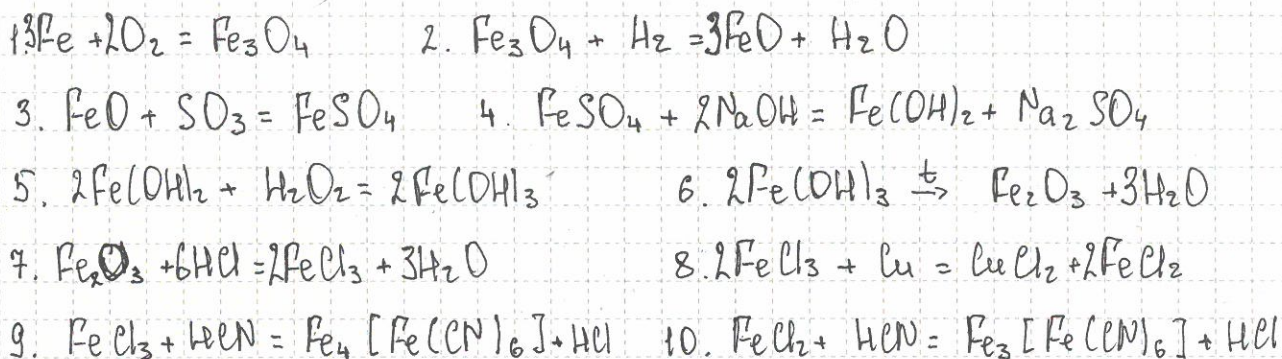 1. 3Fe + 2O₂ = Fe₃O₄ 2. Fe₃O₄ + H₂ = 3FeO + H₂O
3. FeO + SO₃ = FeSO₄ 4. FeSO₄ + 2NaOH = Fe(OH)₂ + Na₂SO₄
5. 2Fe(OH)₂ + H₂O₂ = 2Fe(OH)₃ 6. 2Fe(OH)₃ →ᵗ Fe₂O₃ + 3H₂O
7. Fe₂O₃ + 6HCl = 2FeCl₃ + 3H₂O 8. 2FeCl₃ + Cu = CuCl₂ + 2FeCl₂
9. FeCl₃ + HCN = Fe₄[Fe(CN)₆] + HCl 10. FeCl₂ + HCN = Fe₃[Fe(CN)₆] + HCl